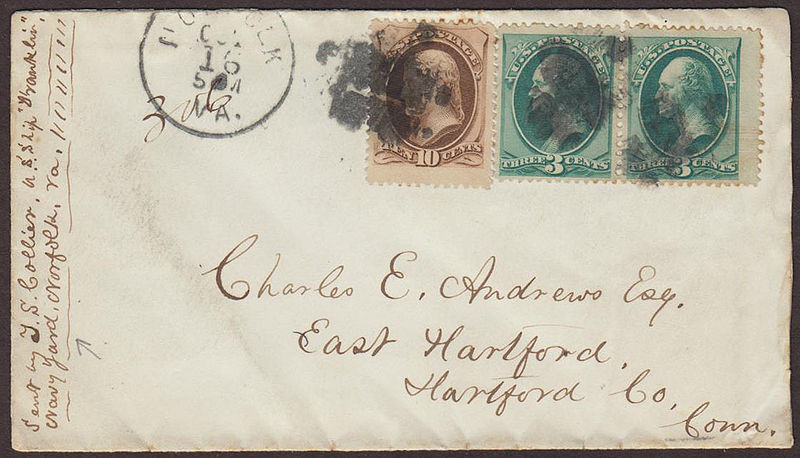 NORFOLK
OCT
16
5 PM
VA.
U.S. POSTAGE
TEN 10 CENTS
U.S. POSTAGE
THREE 3 CENTS
U.S. POSTAGE
THREE 3 CENTS
Charles E. Andrews Esq.
East Hartford,
Hartford Co,
Conn.
Sent by T. S. Collier, U.S. Ship "Franklin",
Navy Yard, Norfolk, Va.